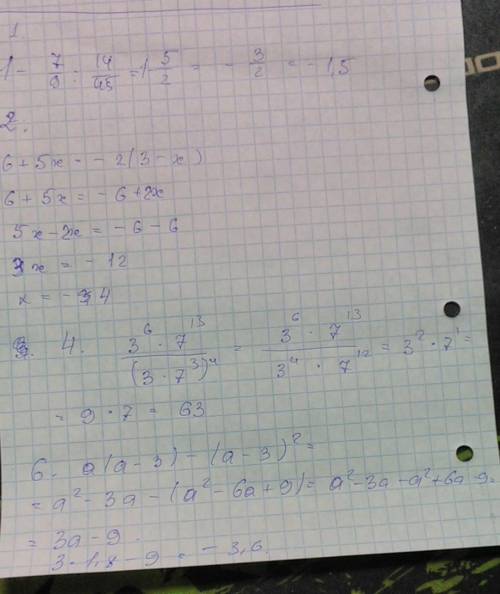 1
1 - 7/9 : 14/45 = 1 - 5/2 = - 3/2 = - 1,5
2.
6 + 5x = - 2(3 - x)
6 + 5x = - 6 + 2x
5x - 2x = - 6 - 6
3x = - 12
x = - 4
4. 3^6 · 7^13 / (3 · 7^3)^4 = 3^6 · 7^13 / 3^4 · 7^12 = 3^2 · 7^1 =
= 9 · 7 = 63
6. a(a - 3) - (a - 3)^2 =
= a^2 - 3a - (a^2 - 6a + 9) = a^2 - 3a - a^2 + 6a - 9 =
= 3a - 9.
3 · 1,8 - 9 = - 3,6.